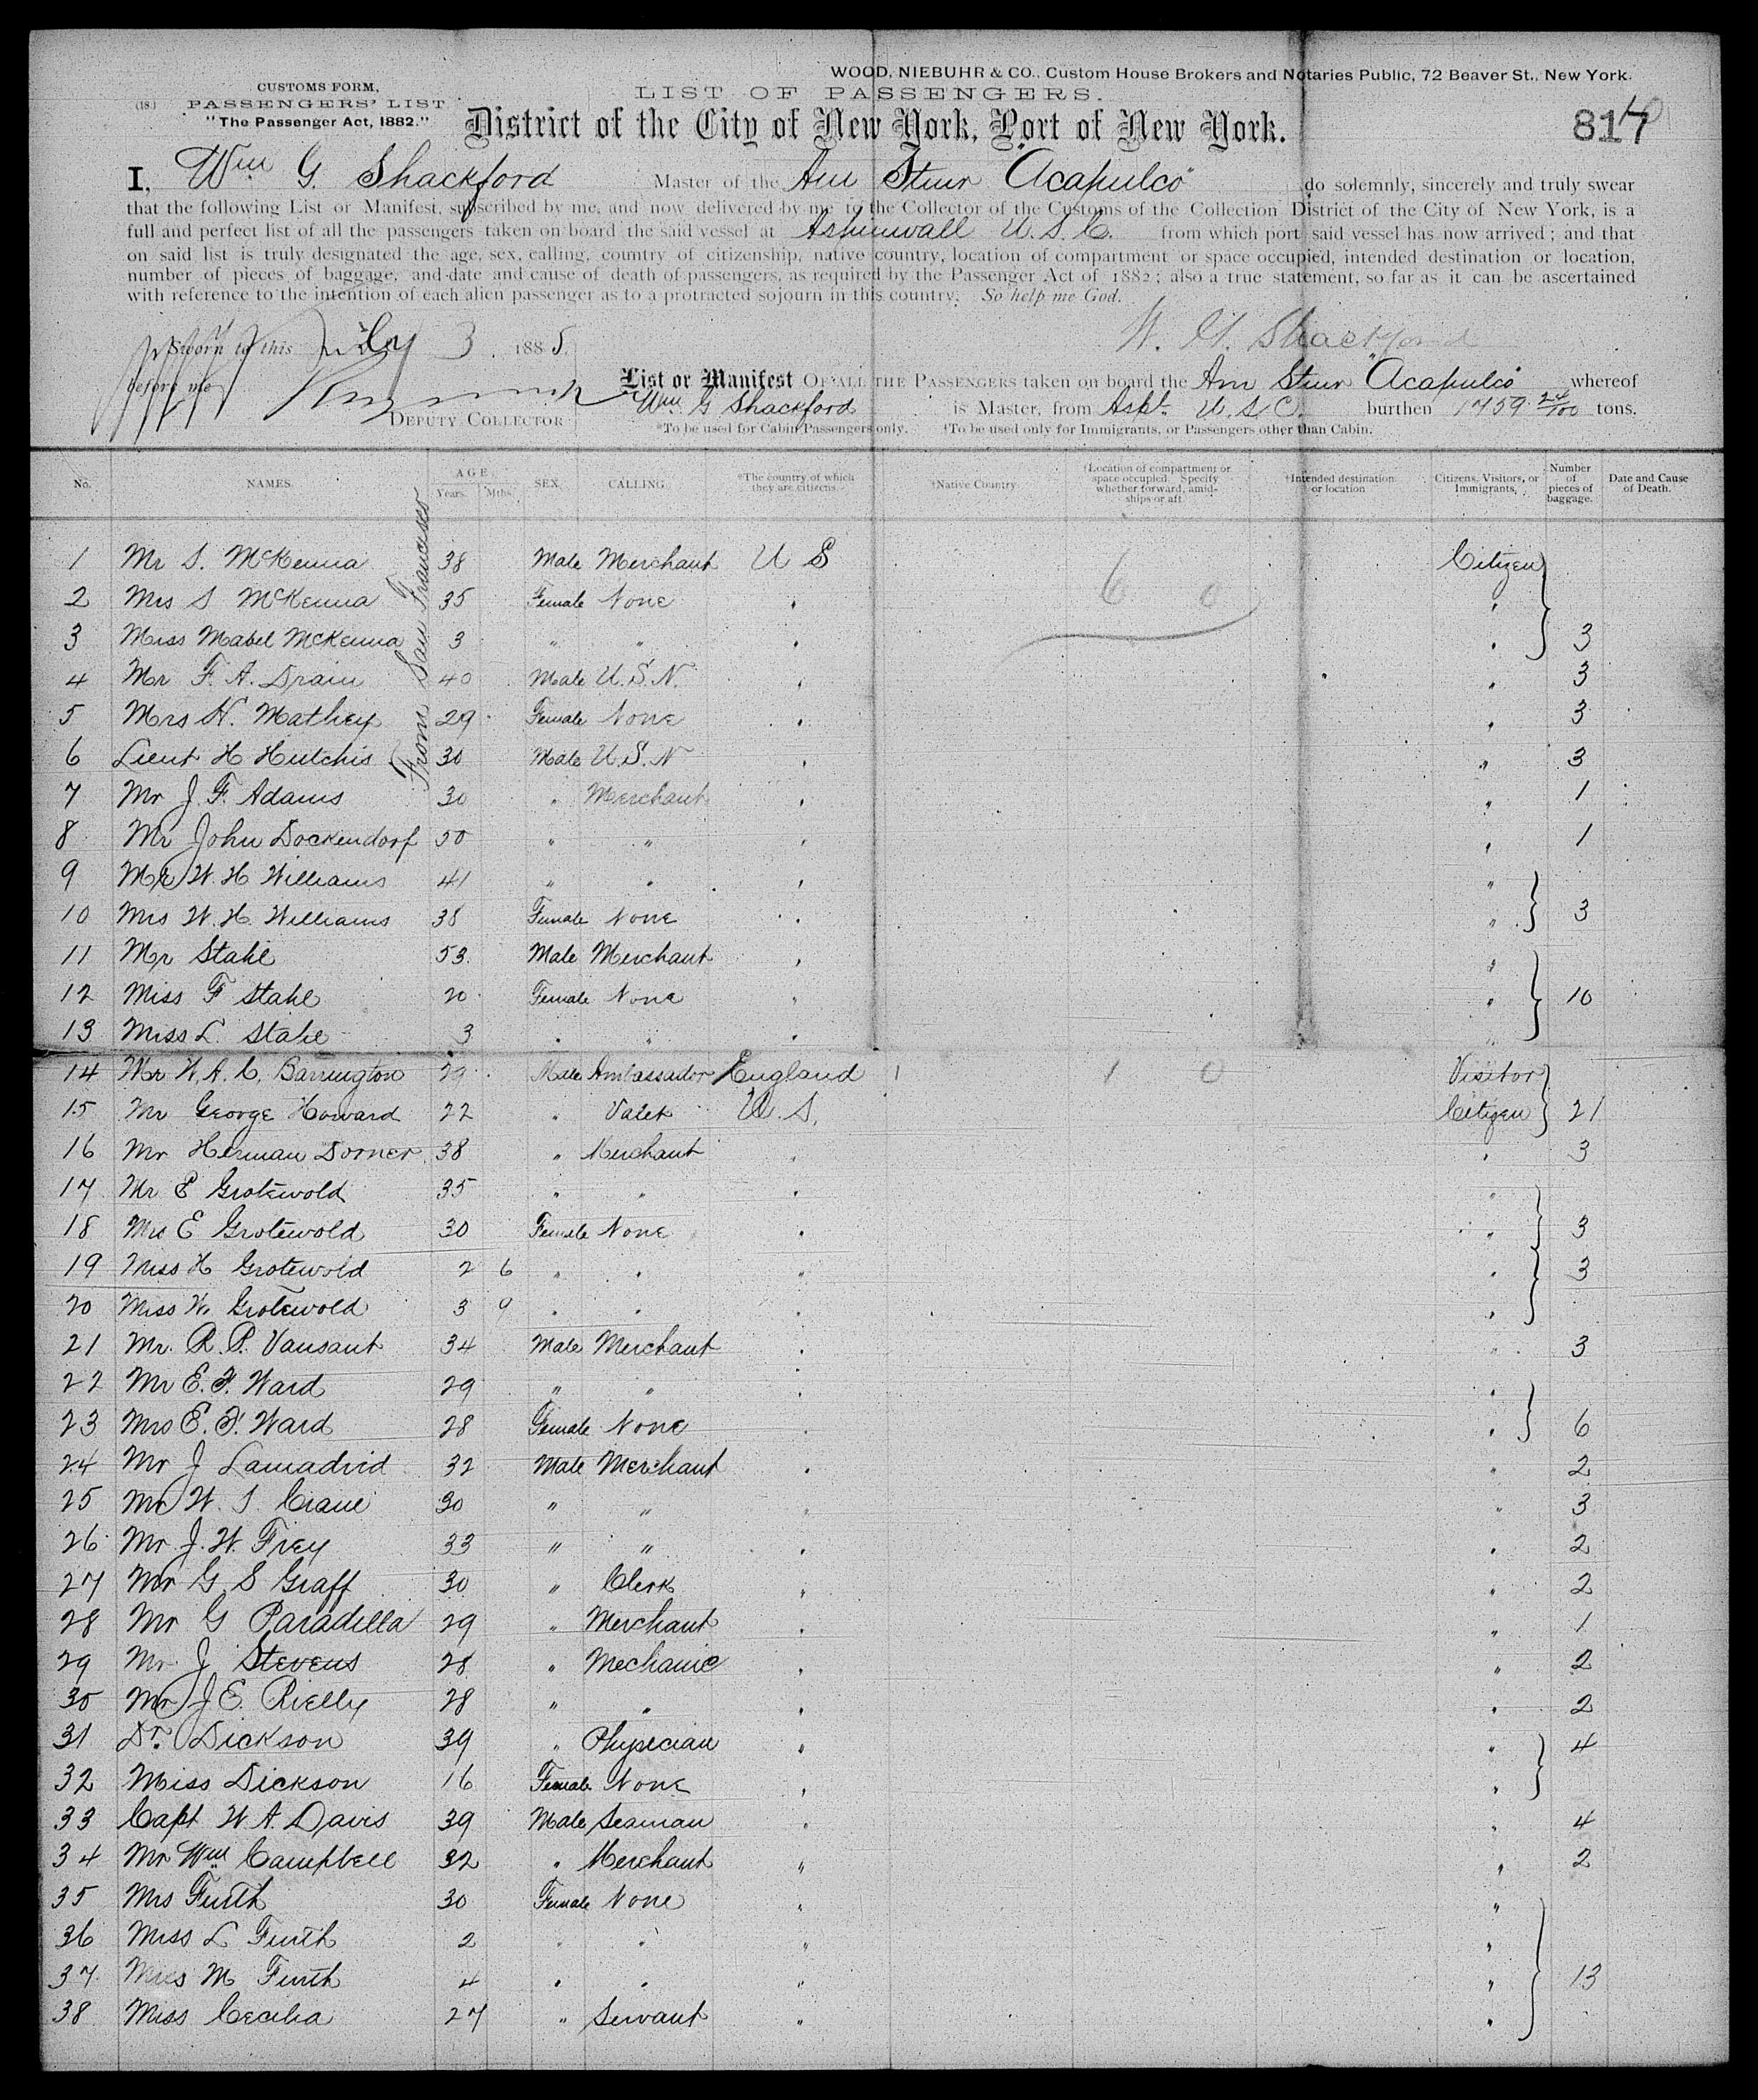 WOOD, NIEBUHR & CO., Custom House Brokers and Notaries Public, 72 Beaver St., New York.
CUSTOMS FORM,
(18.) PASSENGERS' LIST
"The Passenger Act, 1882."
LIST OF PASSENGERS.
District of the City of New York, Port of New York.
817
I, Wm G. Shackford Master of the Am Stmr "Acapulco" do solemnly, sincerely and truly swear
that the following List or Manifest, subscribed by me, and now delivered by me to the Collector of the Customs of the Collection District of the City of New York, is a
full and perfect list of all the passengers taken on board the said vessel at Aspinwall U.S.C. from which port said vessel has now arrived; and that
on said list is truly designated the age, sex, calling, country of citizenship, native country, location of compartment or space occupied, intended destination or location,
number of pieces of baggage, and date and cause of death of passengers, as required by the Passenger Act of 1882; also a true statement, so far as it can be ascertained
with reference to the intention of each alien passenger as to a protracted sojourn in this country. So help me God.
W. G. Shackford
Sworn to this July 3 1885.
before me
DEPUTY COLLECTOR
List or Manifest OF ALL THE PASSENGERS taken on board the Am Stmr "Acapulco" whereof
Wm G Shackford is Master, from Aspl. U.S.C. burthen 1759 24/100 tons.
*To be used for Cabin Passengers only. †To be used only for Immigrants, or Passengers other than Cabin.
No. NAMES. AGE. Years. Mths. SEX. CALLING. *The country of which they are citizens. †Native Country. †Location of compartment or space occupied. Specify whether forward, amidships or aft. †Intended destination or location Citizens, Visitors, or Immigrants. Number of pieces of baggage. Date and Cause of Death.
From San Francisco
1 Mr S. McKenna 38 Male Merchant U S 6 0 Citizen
2 Mrs S McKenna 35 Female None " "
3 Miss Mabel McKenna 3 " " " " 3
4 Mr F. A. Drain 40 Male U.S.N. " " 3
5 Mrs H. Mathey 29 Female None " " 3
6 Lieut H Hutchis 30 Male U.S.N " " 3
7 Mr J. F. Adams 30 " Merchant " " 1
8 Mr John Dockendorf 50 " " " " 1
9 Mr W. H Williams 41 " " " "
10 Mrs W. H. Williams 38 Female None " " 3
11 Mr Stahl 53 Male Merchant " "
12 Miss F Stahl 20 Female None " " 10
13 Miss L. Stahl 3 " " " "
14 Mr W. A. C. Barrington 29 Male Ambassador England 1 1 0 Visitor
15 Mr George Howard 22 " Valet U. S. Citizen 21
16 Mr Herman Dorner 38 " Merchant " " 3
17 Mr E Grotewold 35 " " " "
18 Mrs E Grotewold 30 Female None " " 3
19 Miss H Grotewold 2 6 " " " " 3
20 Miss W. Grotewold 3 9 " " " "
21 Mr. R. P. Vansant 34 Male Merchant " " 3
22 Mr E. F. Ward 29 " " " "
23 Mrs E. F. Ward 28 Female None " " 6
24 Mr J Lamadrid 32 Male Merchant " " 2
25 Mr W. S. Crane 30 " " " " 3
26 Mr J. W. Frey 33 " " " " 2
27 Mr G S Graff 30 " Clerk " " 2
28 Mr G Paradella 29 " Merchant " " 1
29 Mr J Stevens 28 " Mechanic " " 2
30 Mr J E. Rielly 28 " " " " 2
31 Dr. Dickson 39 " Physician " " 4
32 Miss Dickson 16 Female None " "
33 Capt W A. Davis 39 Male Seaman " " 4
34 Mr Wm Campbell 32 " Merchant " " 2
35 Mrs Furth 30 Female None " "
36 Miss L Furth 2 " " " "
37 Miss M Furth 4 " " " " 13
38 Miss Cecilia 27 " Servant " "